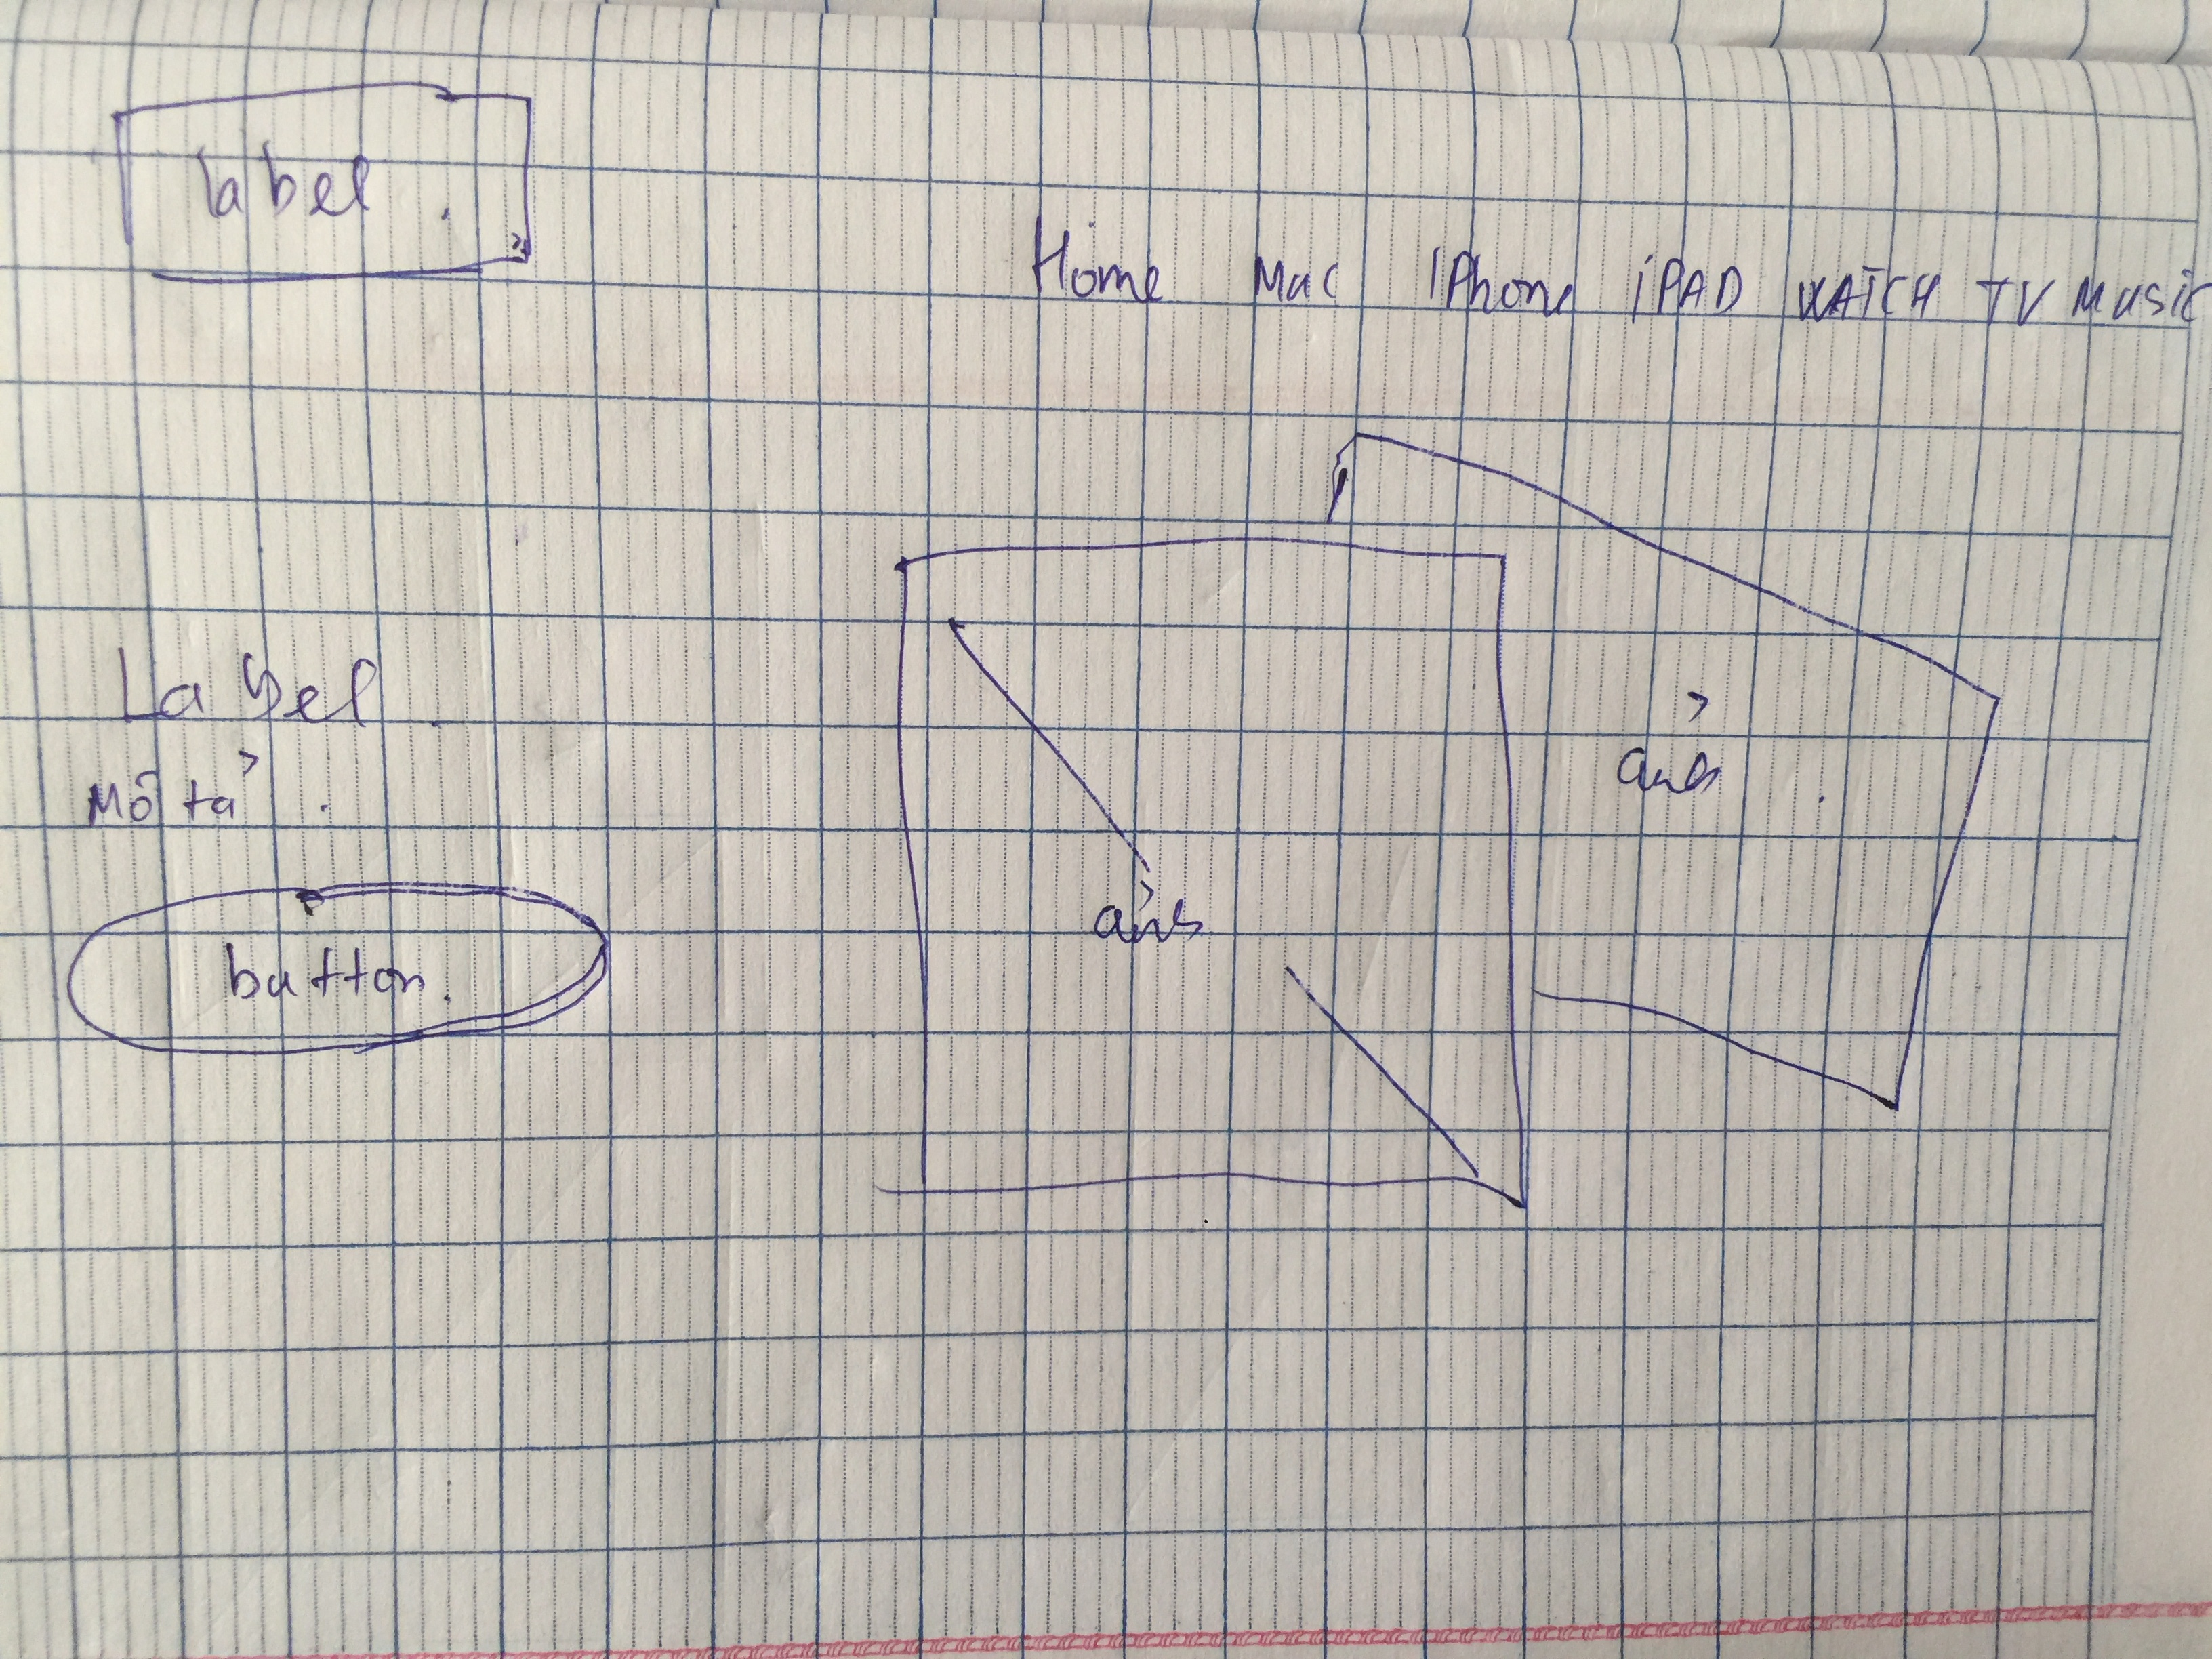 label
Home Mac IPhone iPAD WATCH TV MUSIC
Label
Mô tả
button
ảnh
ảnh